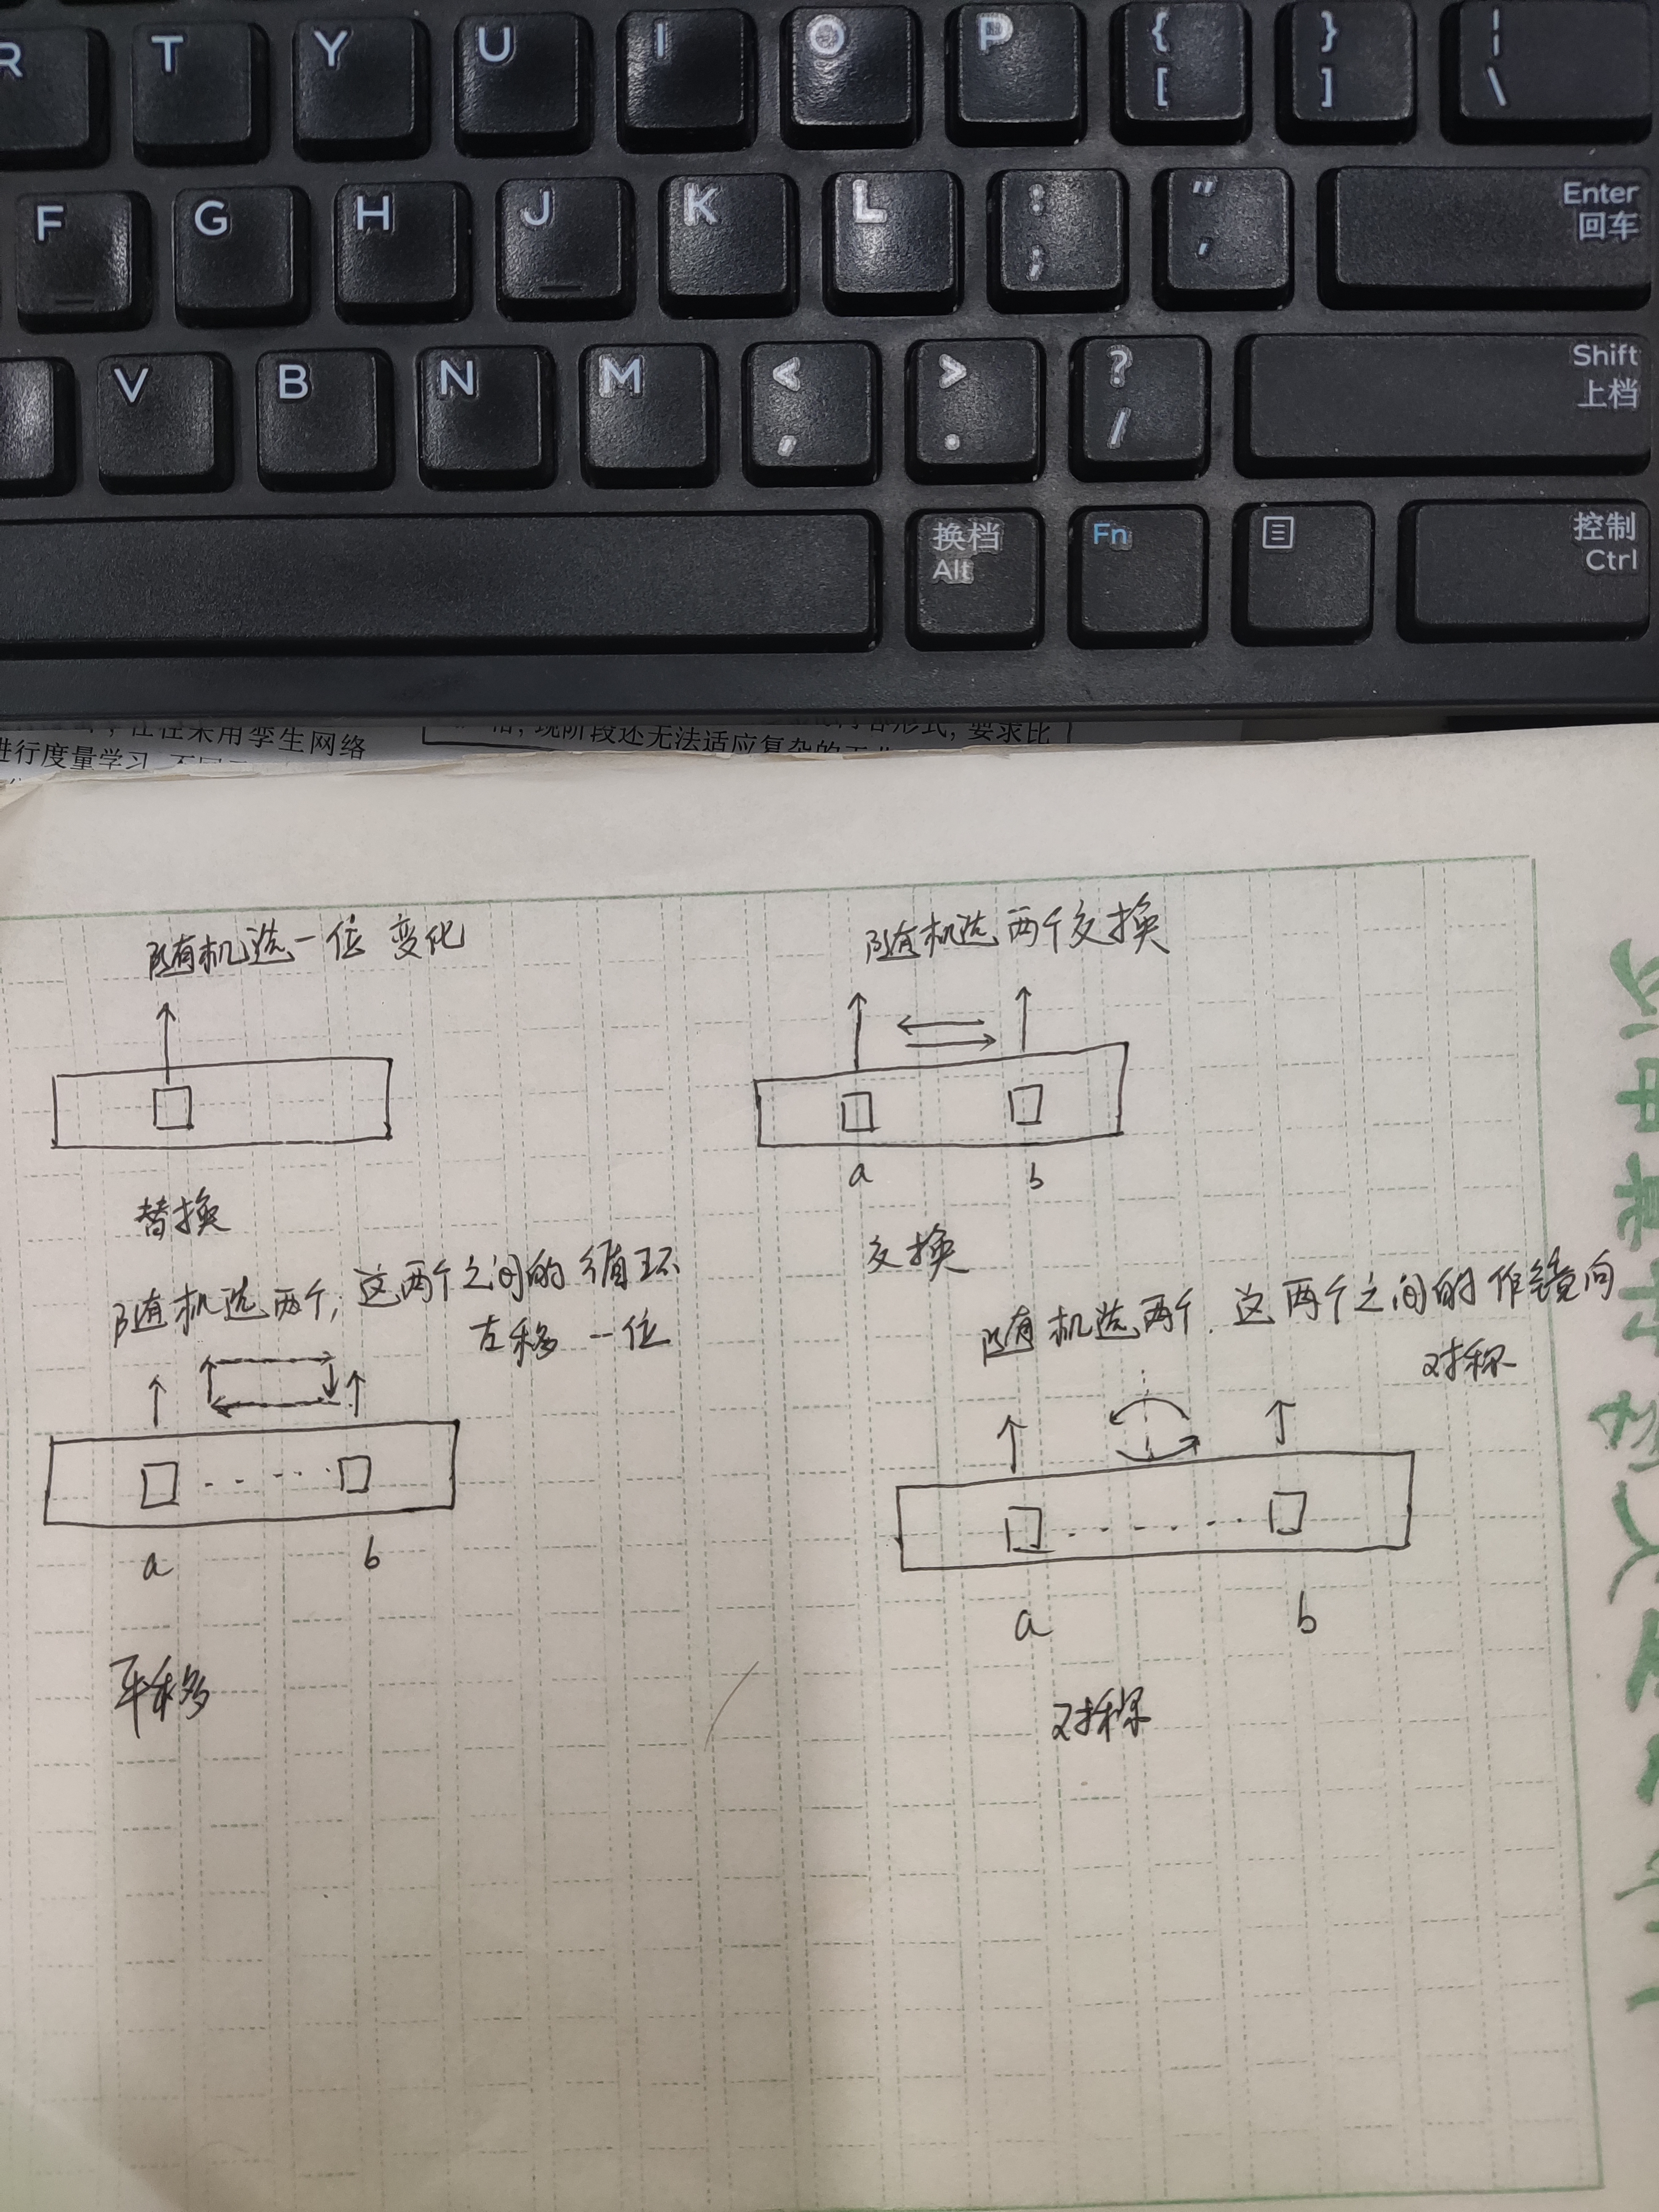 R T Y U I O P { [ } ] | \
F G H J K L : ; " ' Enter 回车
V B N M < , > . ? / Shift 上档
换档 Alt Fn 控制 Ctrl
往往采用孪生网络
进行度量学习
现阶段还无法适应复杂的
形式,要求比
随机选一位 变化
随机选两个交换
a b
替换
交换
随机选两个,这两个之间的循环
左移一位
随机选两个.这两个之间的作镜向
对称
a b
a b
平移
对称